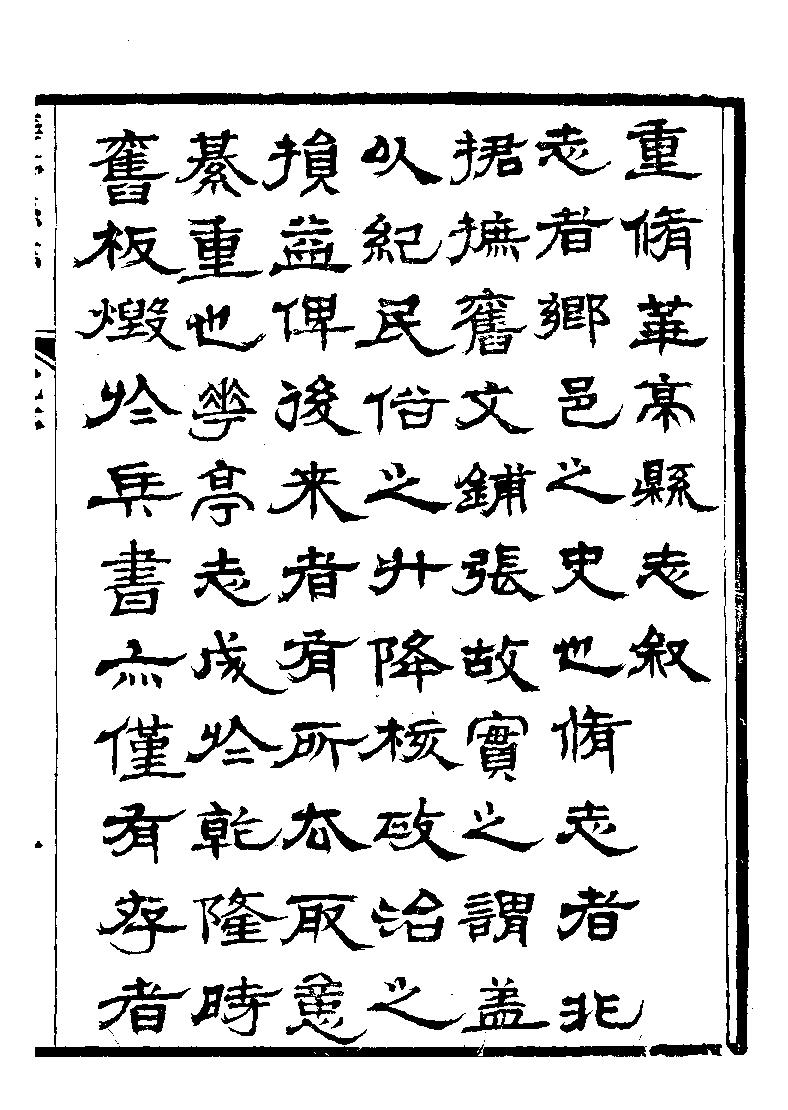 重脩華亭縣志叙
志者鄉邑之史也脩志者非
捃摭舊文鋪張故實之謂盖
以紀民俗之升降核政治之
損益俾後来者有所去取意
綦重也華亭志成於乾隆時
舊板燬於兵書亦僅有存者